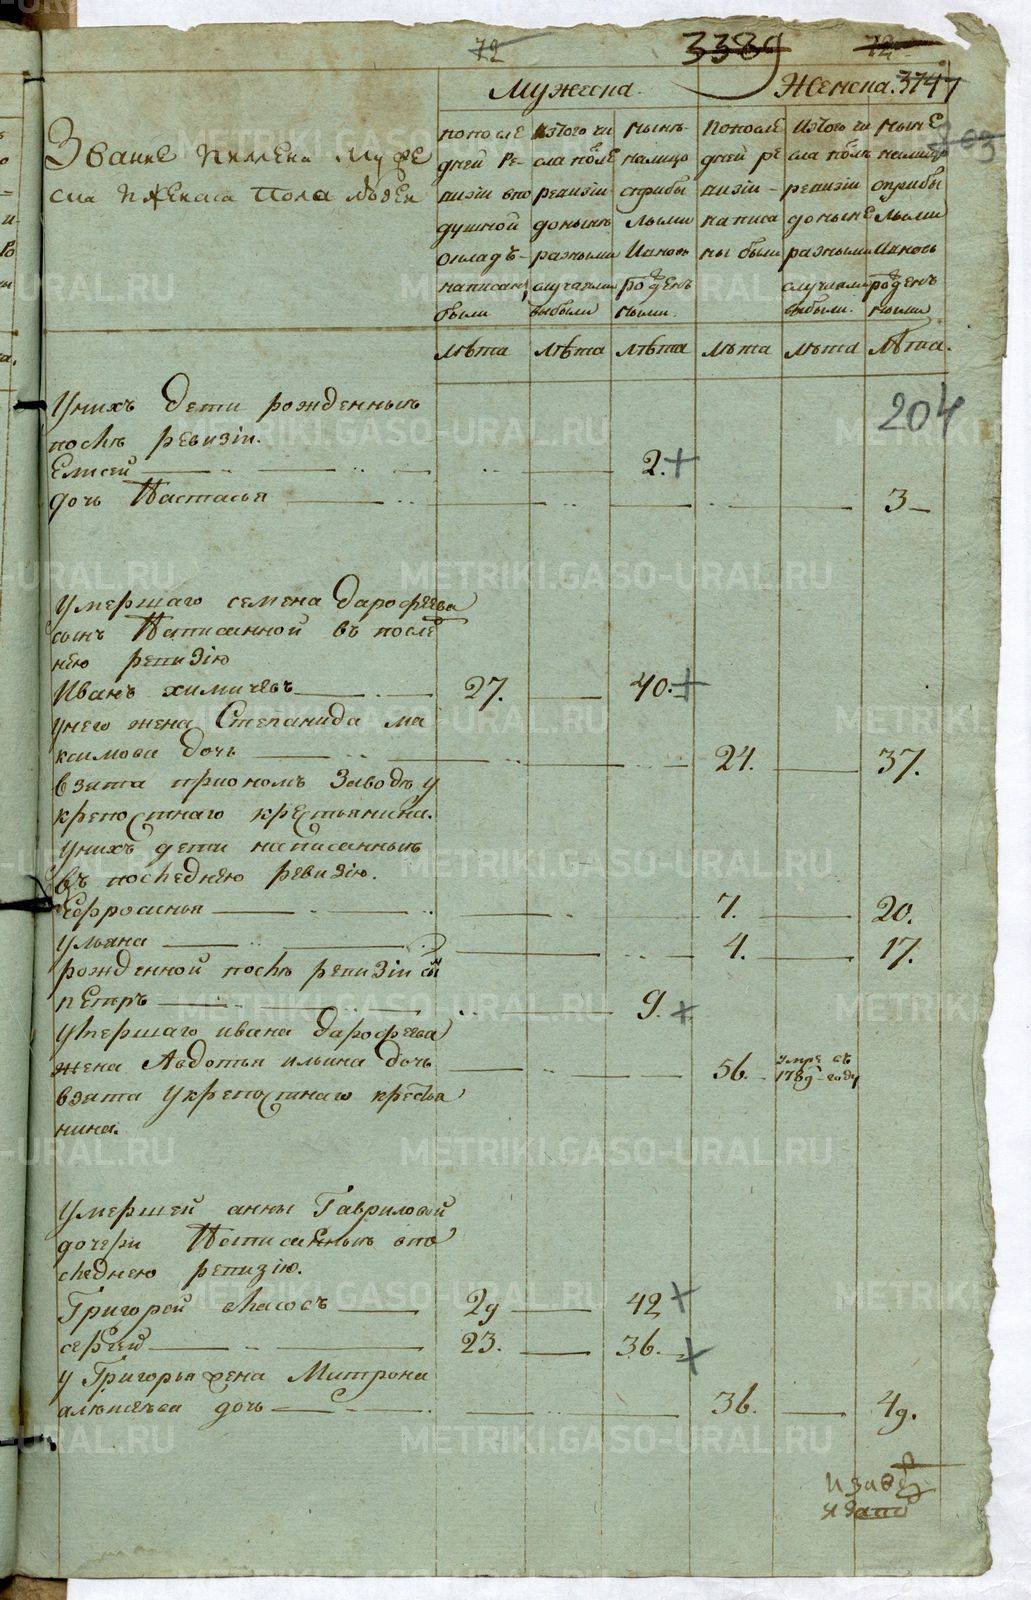 72 3389 72
Мужеска. Женска. 3747
203
Звание и имена муже
ска и женска пола людей
попосле дней ре визии впо душной окладъ написаны были
изтого чи сла после ревизии доныне разными случаями выбыли
ныне налицо сприбы лыми и вновь рожден ными.
попосле дней ре визии написа ны были
изтого чи сла после ревизии доныне разными случаями выбыли.
ныне налицо сприбы лыми и вновь рожден ными
лѣта лѣта лѣта лѣта лѣта лѣта.
204
Унихъ дети рожденныя
послѣ ревизiи.
Елисей 2. +
дочь Настасья 3
умершаго семена дарофеева
сынъ Написанной въ после
нею ревизiю
Иванъ химичевъ 27. 40. +
унего жена Степанида ма
ксимова дочь 24. 37.
взята приономъ заводѣ у
крепостнаго крестьянина.
унихъ дети написанныя
въ последнею ревизiю.
Ефросинья 7. 20.
ульяна 4. 17.
рожденной послѣ ревизiи сы
петръ 9. +
умершаго ивана дарофеева
жена Авдотья ильина дочь 56. умре въ
1789 году
взята укрепостнаго крестья
нина.
умершей анны Гавриловой
дочери Написанныя впо
следнею ревизiю.
Григорей власовъ 29 42 +
сергей 23. 36. +
у Григорья жена Матрона
алѣксѣева дочь 36. 49.
METRIKI.GASO-URAL.RU